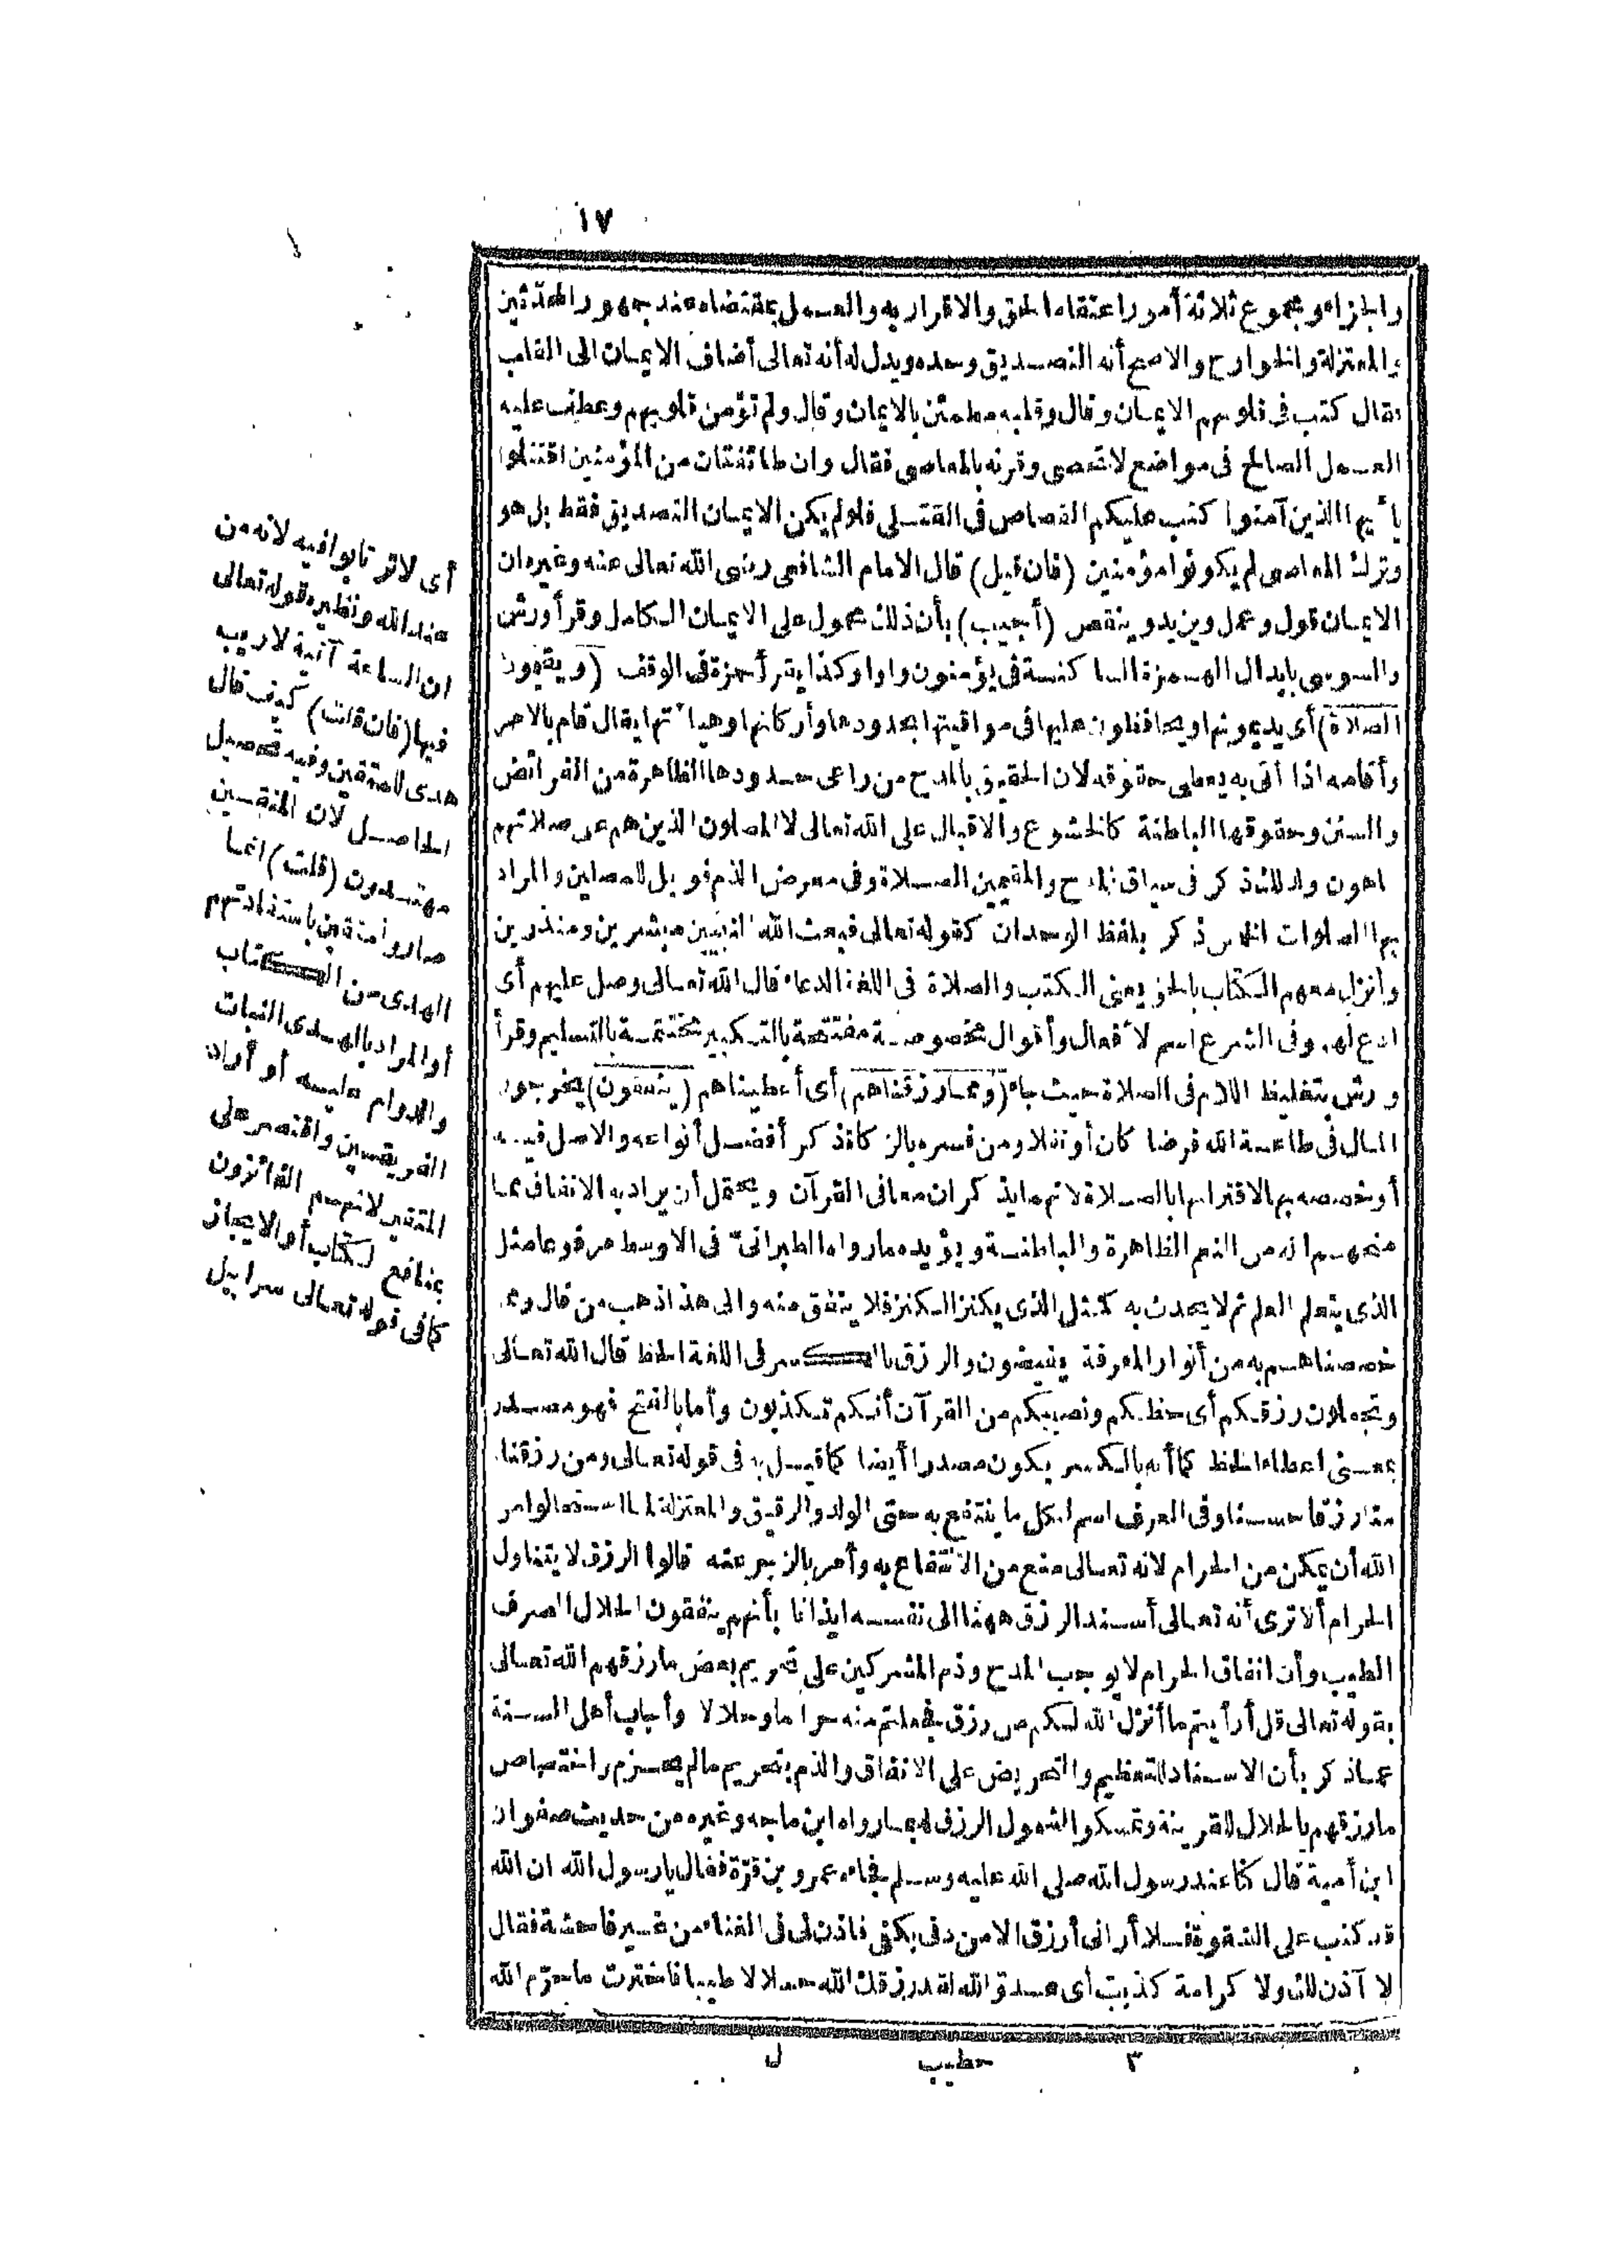 ١٧
والجزاء ومجموع ثلاثة أمور اعتقاد الحق والاقرار به والعمل بمقتضاه عند جمهور المحدّثين
والمعتزلة والخوارج والاصح أنه التصديق وحده ويدل له أنه تعالى أضاف الايمان الى القلب
فقال كتب فى قلوبهم الايمان وقال وقلبه مطمئن بالايمان وقال ولم تؤمن قلوبهم وعطف عليه
العمل الصالح فى مواضع لا تحصى وقرنه بالمعاصى فقال وان طائفتان من المؤمنين اقتتلوا
يا أيها الذين آمنوا كتب عليكم القصاص فى القتلى فلو لم يكن الايمان التصديق فقط بل هو
وترك المعاصى لم يكونوا مؤمنين (فان قيل) قال الامام الشافعى رضى الله تعالى عنه وغيره ان
الايمان قول وعمل ويزيد وينقص (أجيب) بأن ذلك محمول على الايمان الكامل وقرأ ورش
والسوسى بابدال الهمزة الساكنة فى يؤمنون واوا وكذا يقرأ حمزة فى الوقف (ويقيمون
الصلاة) أى يديمونها ويحافظون عليها فى مواقيتها بحدودها وأركانها وهيا تها يقال قام بالامر
وأقامه اذا أتى به يعطى حقوقه لان الحقيق بالمدح من راعى حدودها الظاهرة من الفرائض
والسنن وحقوقها الباطنة كالخشوع والاقبال على الله تعالى لا المصلون الذين هم عن صلاتهم
اهون ولذلك ذكر فى سياق المدح والمقيمين الصلاة وفى معرض الذم فويل للمصلين والمراد
بها الصلوات الخمس ذكر بلفظ الوحدان كقوله تعالى فبعث الله النبيين مبشرين ومنذرين
وأنزل معهم الكتاب بالحق يعنى الكتب والصلاة فى اللغة الدعاء قال الله تعالى وصل عليهم أى
ادع لهم وفى الشرع اسم لا فعال وأقوال مخصوصة مفتتحة بالتكبير مختتمة بالتسليم وقرأ
ورش بتغليظ اللام فى الصلاة حيث جاء (ومما رزقناهم) أى أعطيناهم (ينفقون) يخرجون
المال فى طاعة الله فرضا كان أو نفلا ومن فسره بالزكاة ذكر أفضل أنواعه والاصل فيه
أو خصصه بها لاقترانها بالصلاة لانهما يذكران معا فى القرآن ويحتمل أن يراد به الانفاق مما
منحهم الله من النعم الظاهرة والباطنة ويؤيده ما رواه الطبرانىّ فى الاوسط مرفوعا مثل
الذى يتعلم العلم ثم لا يحدث به كمثل الذى يكنز الكنز فلا ينفق منه والى هذا ذهب من قال ومما
خصصناهم به من أنوار المعرفة يفيضون والرزق بالكسر فى اللغة الحظ قال الله تعالى
وتجعلون رزقكم أى حظكم ونصيبكم من القرآن أنكم تكذبون وأما بالفتح فهو مصدر
بمعنى اعطاء الحظ كما أنه بالكسر يكون مصدرا أيضا كما قيل به فى قوله تعالى ومن رزقناه
منا رزقا حسنا وفى العرف اسم لكل ما ينتفع به حتى الولد والرقيق والمعتزلة لما استحالوا من
الله أن يمكن من الحرام لانه تعالى منع من الانتفاع به وأمر بالزجر عنه قالوا الرزق لا يتناول
الحرام ألا ترى أنه تعالى أسند الرزق ههنا الى نفسه ايذانا بأنهم ينفقون الحلال الصرف
الطيب وأن انفاق الحرام لا يوجب المدح وذم المشركين على تحريم بعض ما رزقهم الله تعالى
بقوله تعالى قل أرأيتم ما أنزل الله لكم من رزق فجعلتم منه حراما وحلالا وأجاب أهل السنة
عما ذكر بأن الاسناد للتعظيم والتحريض على الانفاق والذم بتحريم ما لم يحرم واختصاص
ما رزقهم بالحلال للقرينة وتمسكوا لشمول الرزق له بما رواه ابن ماجه وغيره من حديث صفوان
ابن أمية قال كنا عند رسول الله صلى الله عليه وسلم فجاءه عمرو بن قرّة فقال يا رسول الله ان الله
قد كتب على الشقوة فلا أرانى أرزق الا من دفى بكفى فاذن لى فى الغناء من غير فاحشة فقال
لا آذن لك ولا كرامة كذبت أى عدوّ الله لقد رزقك الله حلالا طيبا فاخترت ما حرّم الله
٣ خطيب ل
أى لا ترتابوا فيه لانه من
عند الله ونظيره قوله تعالى
ان الساعة آتية لا ريب
فيها (فان قلت) كيف قال
هدى للمتقين وفيه تحصيل
الحاصل لان المتقين
مهتدون (قلت) انما
صاروا متقين باستفادتهم
الهدى من الكتاب
أو المراد بالهدى الثبات
والدوام عليه أو أراد
الفريقين واقتصر على
المتقين لانهم الفائزون
بمنافع الكتاب أو الايجاز
كما فى قوله تعالى سرابيل